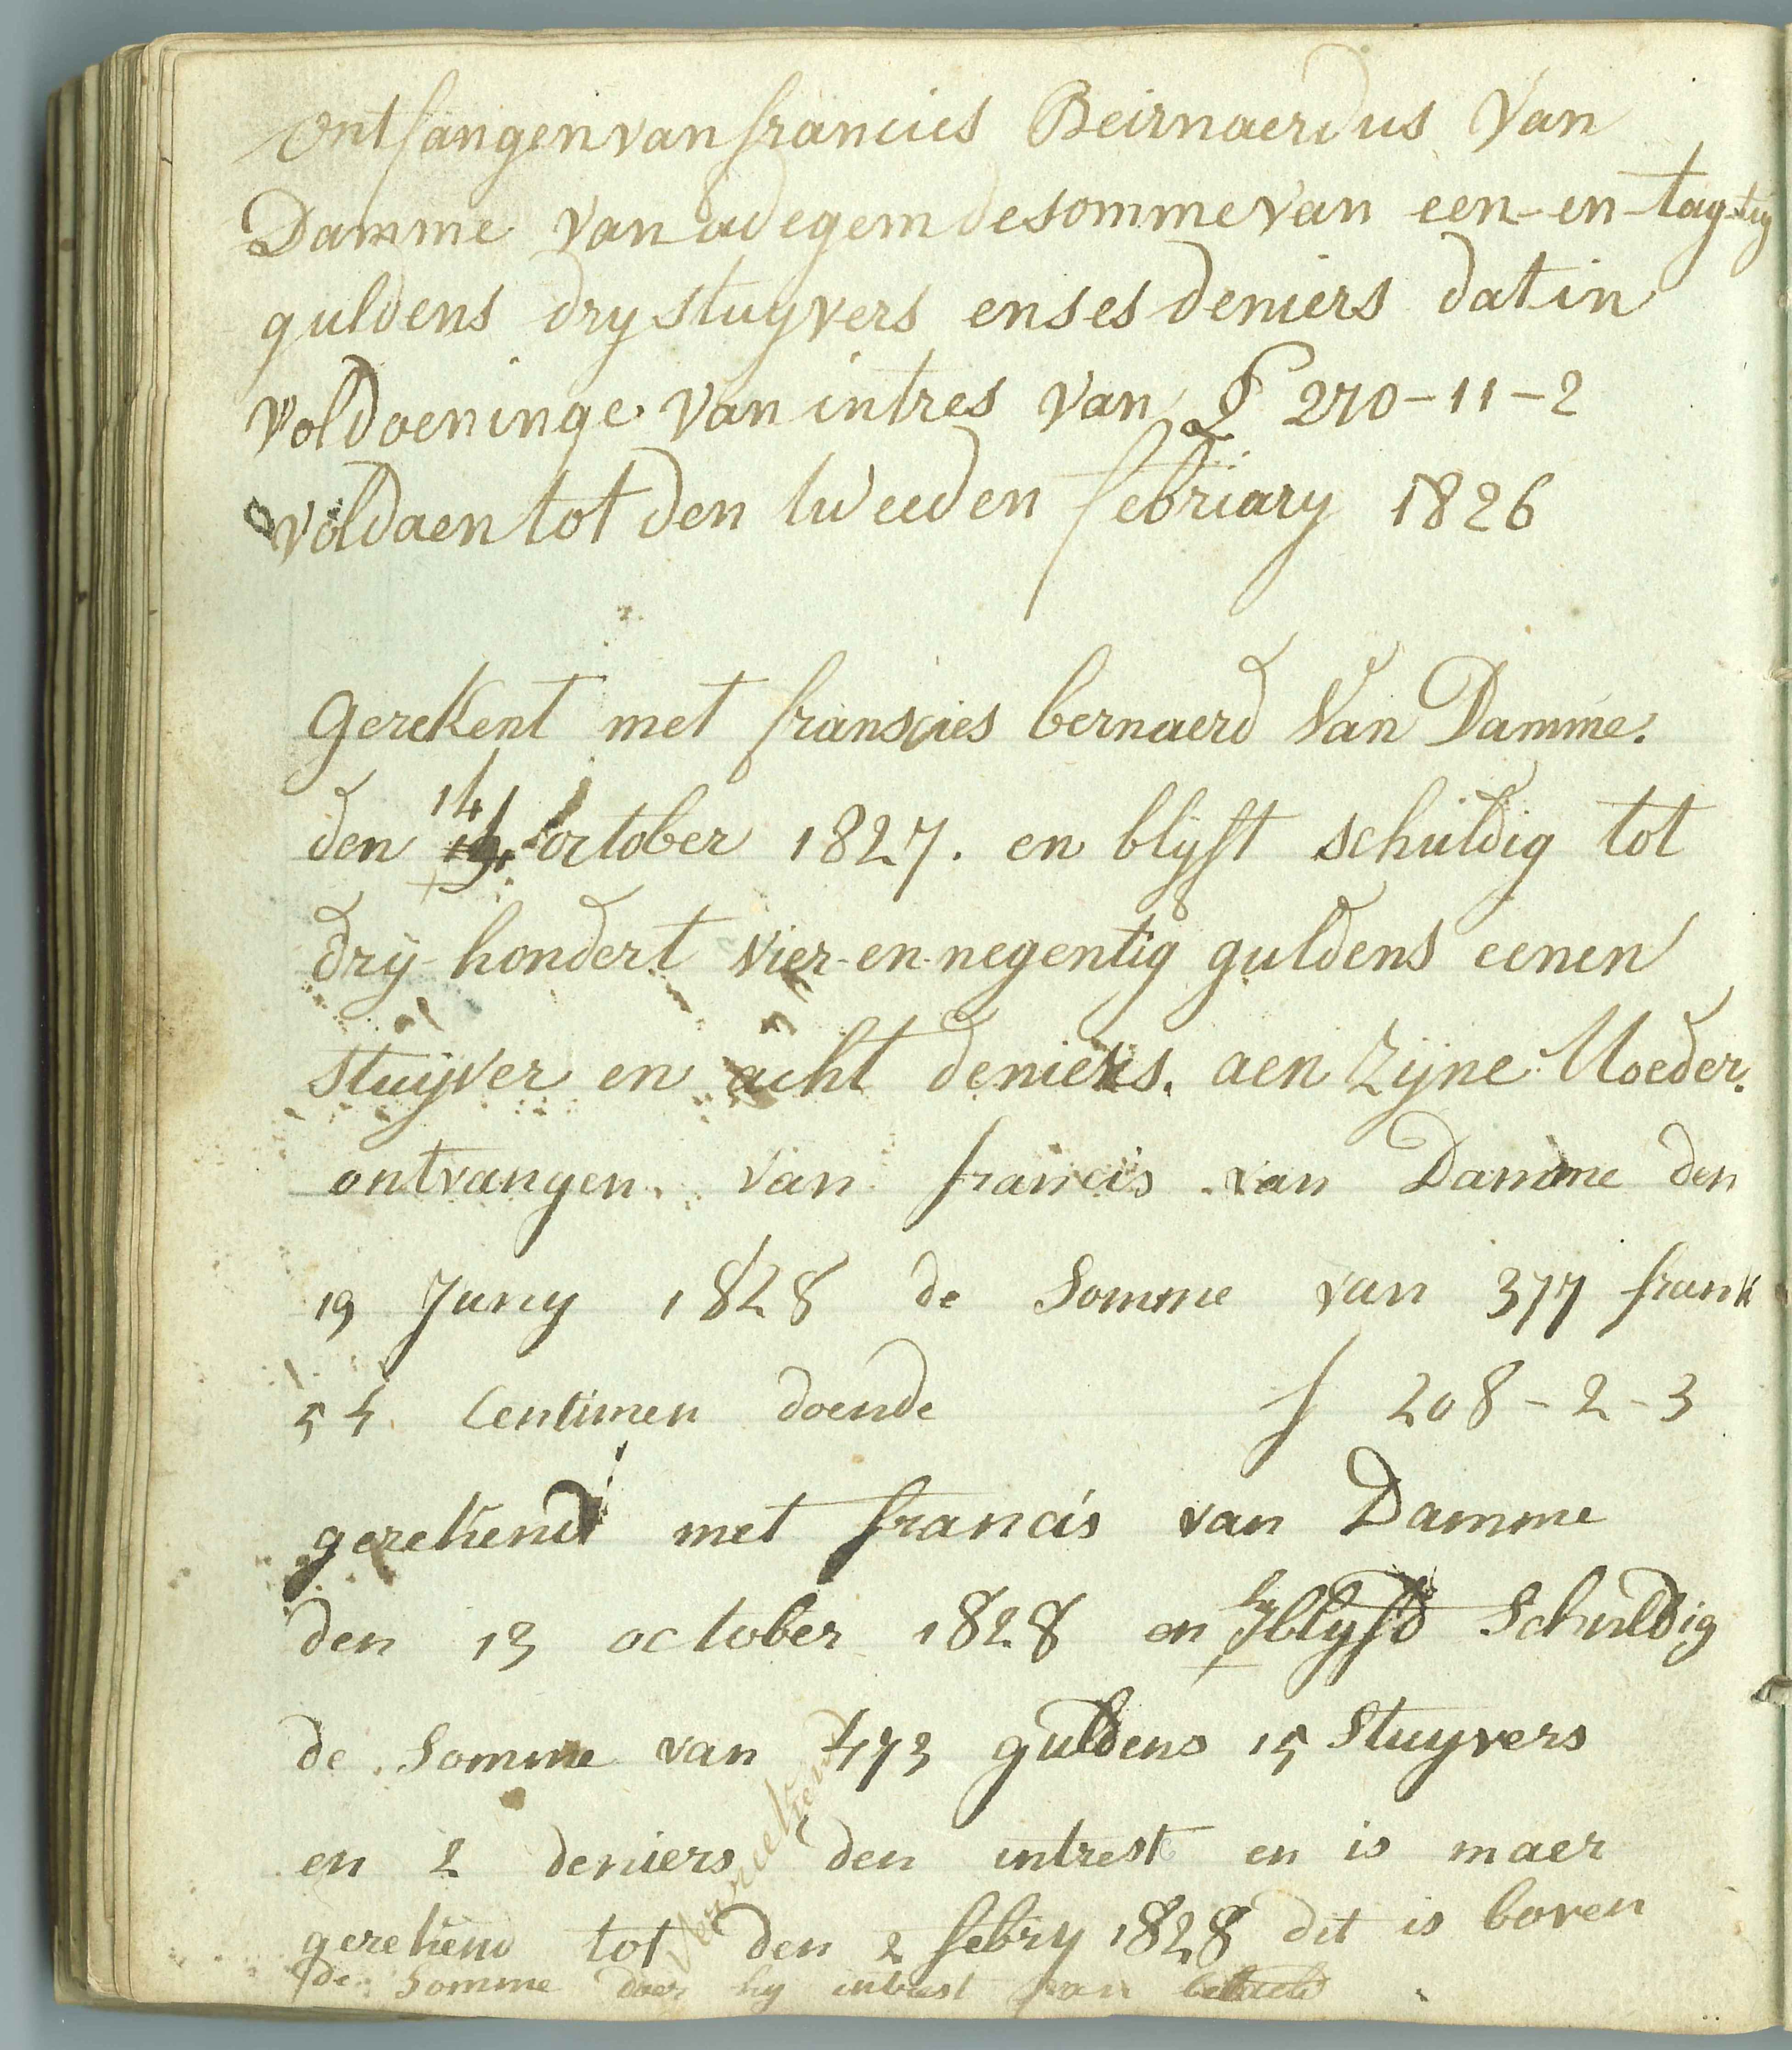 ontfangen van francies Beirnaerdus Van
Damme van adegem de somme van een-en-tagtig
guldens dry stuyvers en ses deniers dat in
voldoeninge van intres van £ 270-11-2
voldaen tot den tweeden febriary 1826
Gerekent met franscies bernaerd Van Damme.
den 14 october 1827. en blyft schuldig tot
dry hondert vier-en-negentig guldens eenen
stuyver en acht deniers. aen zyne Moeder.
ontvangen van francis van Damme den
19 Juny 1828 de Somme van 377 frank
54 Centimen doende f 208-2-3
gerekend met francis van Damme
den 13 october 1828 en hy blyfd Schuldig
de Somme van 473 guldens 15 Stuyvers
en 2 deniers den intrest en is maer
gerekend tot den 2 febry 1828 dit is boven
de Somme daer hy intrest van betaeld
Verrekend